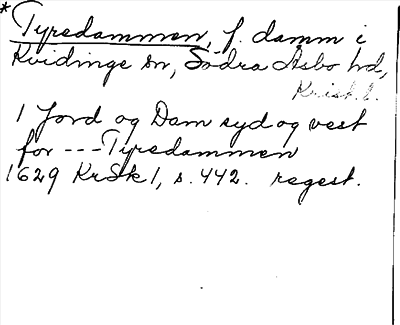 * Tyredammen, f. damm i
Kvidinge sn, Södra Åsbo hd,
Krist. l.
1 Jord og Dam syd og vest
for --- Tyredammen
1629 KrSk 1, s. 442. regest.